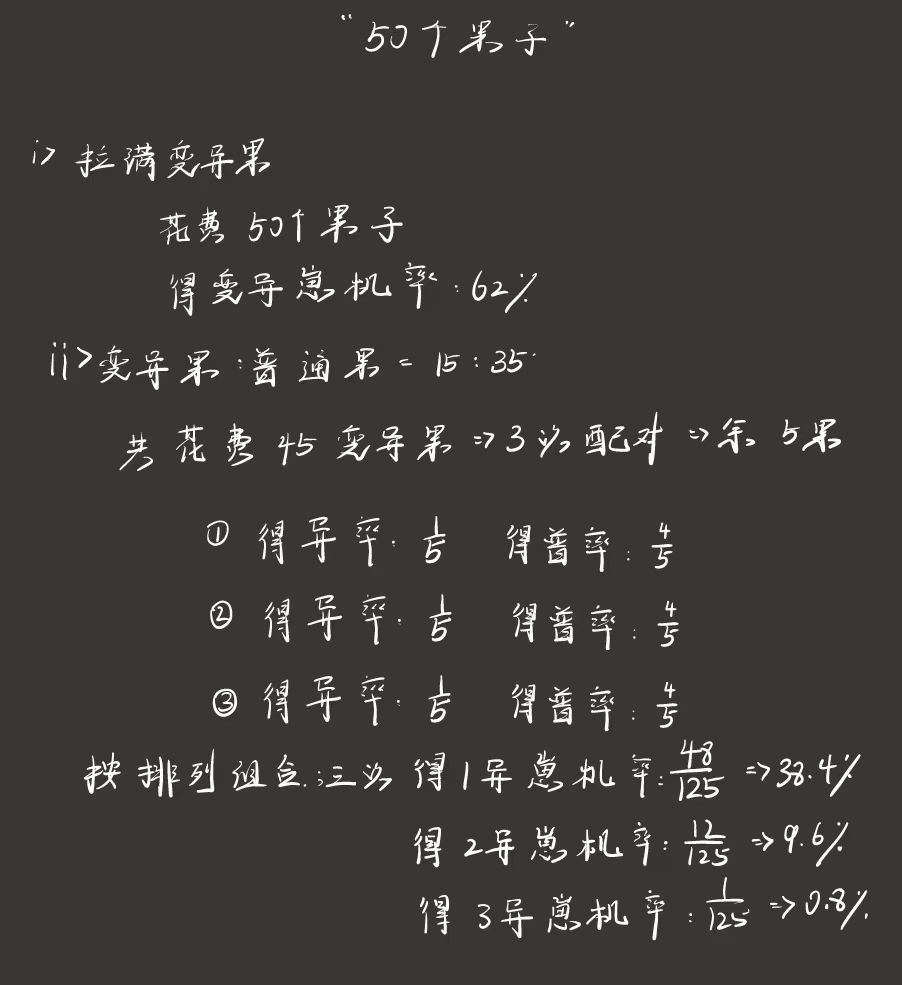 “50个果子”
i> 拉满变异果
花费 50个果子
得变异崽机率:62%
ii>变异果:普通果=15:35
共花费45变异果=>3次配对=>余5果
① 得异率:1/5 得普率:4/5
② 得异率:1/5 得普率:4/5
③ 得异率:1/5 得普率:4/5
按排列组合:三次得1异崽机率:48/125=>38.4%
得2异崽机率:12/125=>9.6%
得3异崽机率:1/125=>0.8%